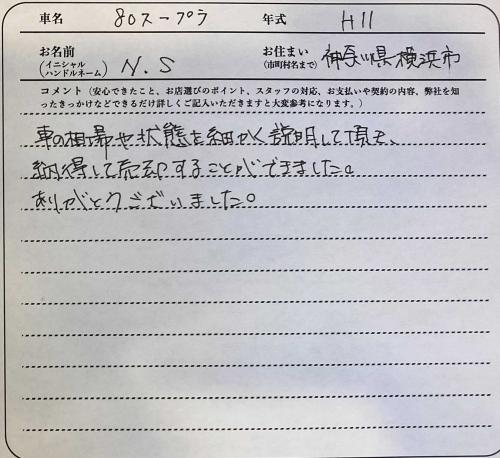 車名 80スープラ 年式 H11
お名前 (イニシャル ハンドルネーム) N.S お住まい (市町村名まで) 神奈川県横浜市
コメント (安心できたこと、お店選びのポイント、スタッフの対応、お支払いや契約の内容、弊社を知
ったきっかけなどできるだけ詳しくご記入いただきますと大変参考になります。)
車の相場や状態を細かく説明して頂き、
納得して売却することができました。
ありがとうございました。